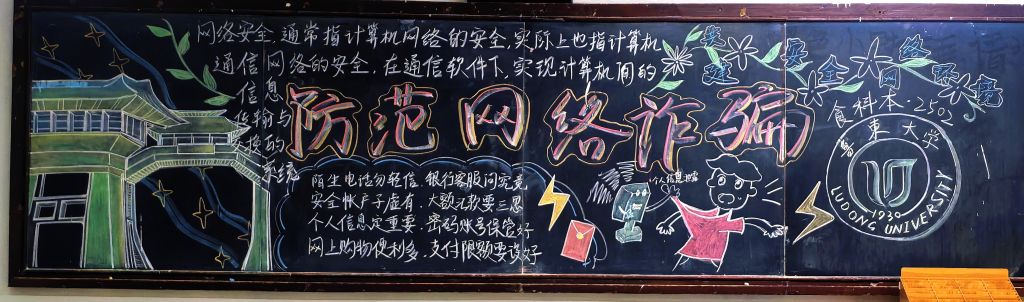 网络安全,通常指计算机网络的安全,实际上也指计算机
通信网络的安全,在通信软件下,实现计算机间的
信息
传输与
交换的
系统
安全网络
建 环境
防范网络诈骗
食科本·2502
陌生电话勿轻信,银行客服问究竟
安全帐户子虚有,大额汇款要三思
个人信息定重要,密码账号保管好
网上购物便利多,支付限额要设好
个人信息泄露
鲁東大学
1930
LUDONG UNIVERSITY